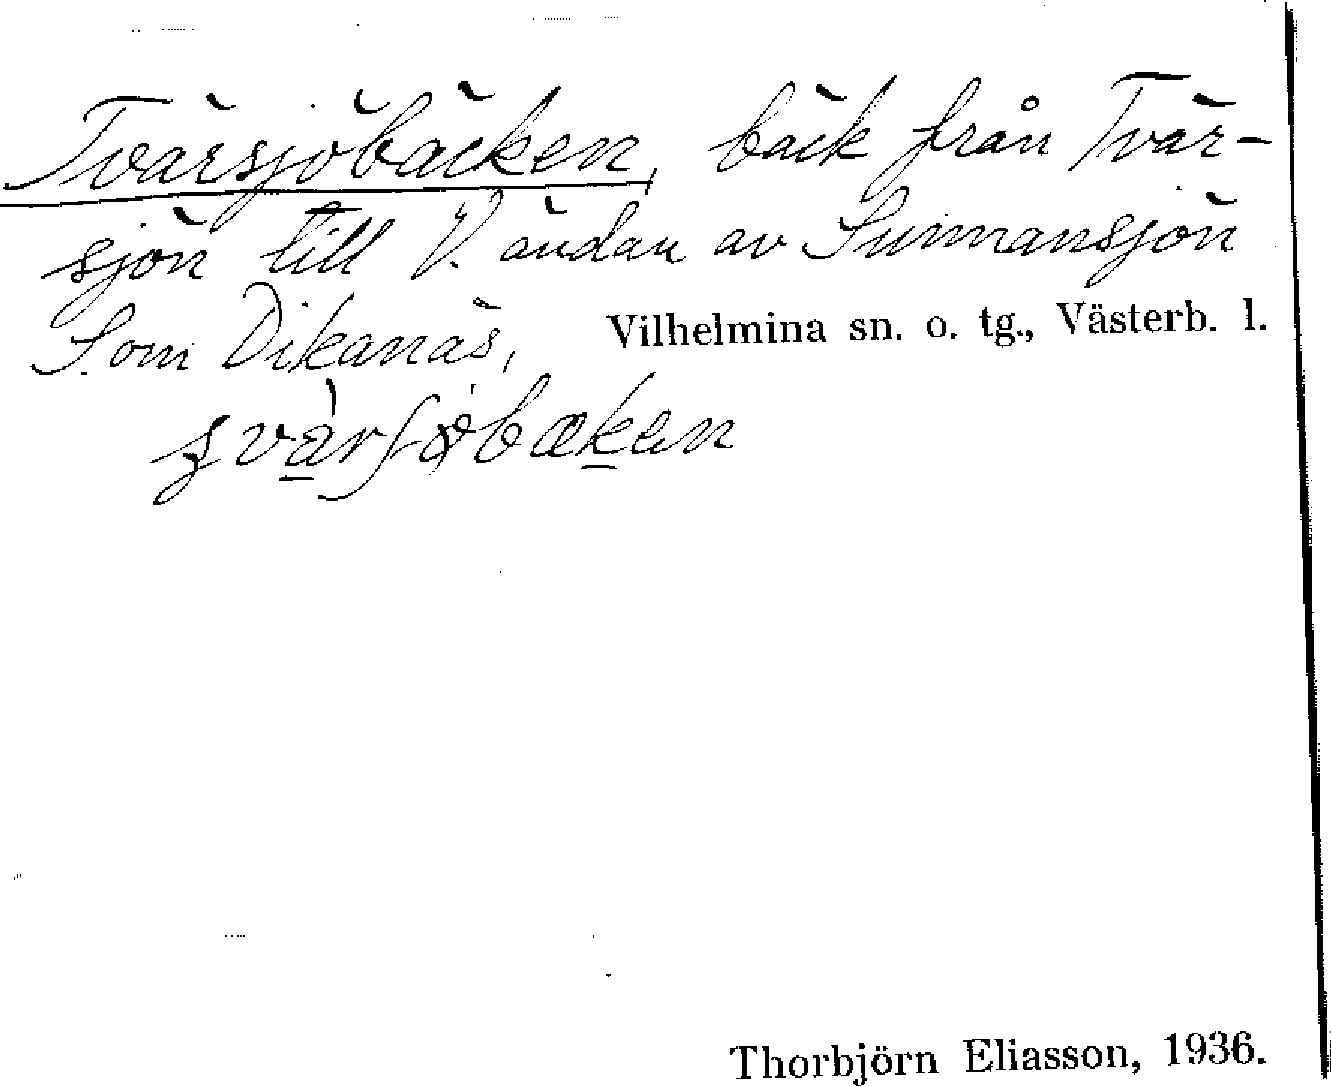 Tvärsjöbäcken, bäck från Tvär-
sjön till V. ändan av Sunnansjön
S. om Dikanäs, Vilhelmina sn. o. tg., Västerb. l.
Thorbjörn Eliasson, 1936.